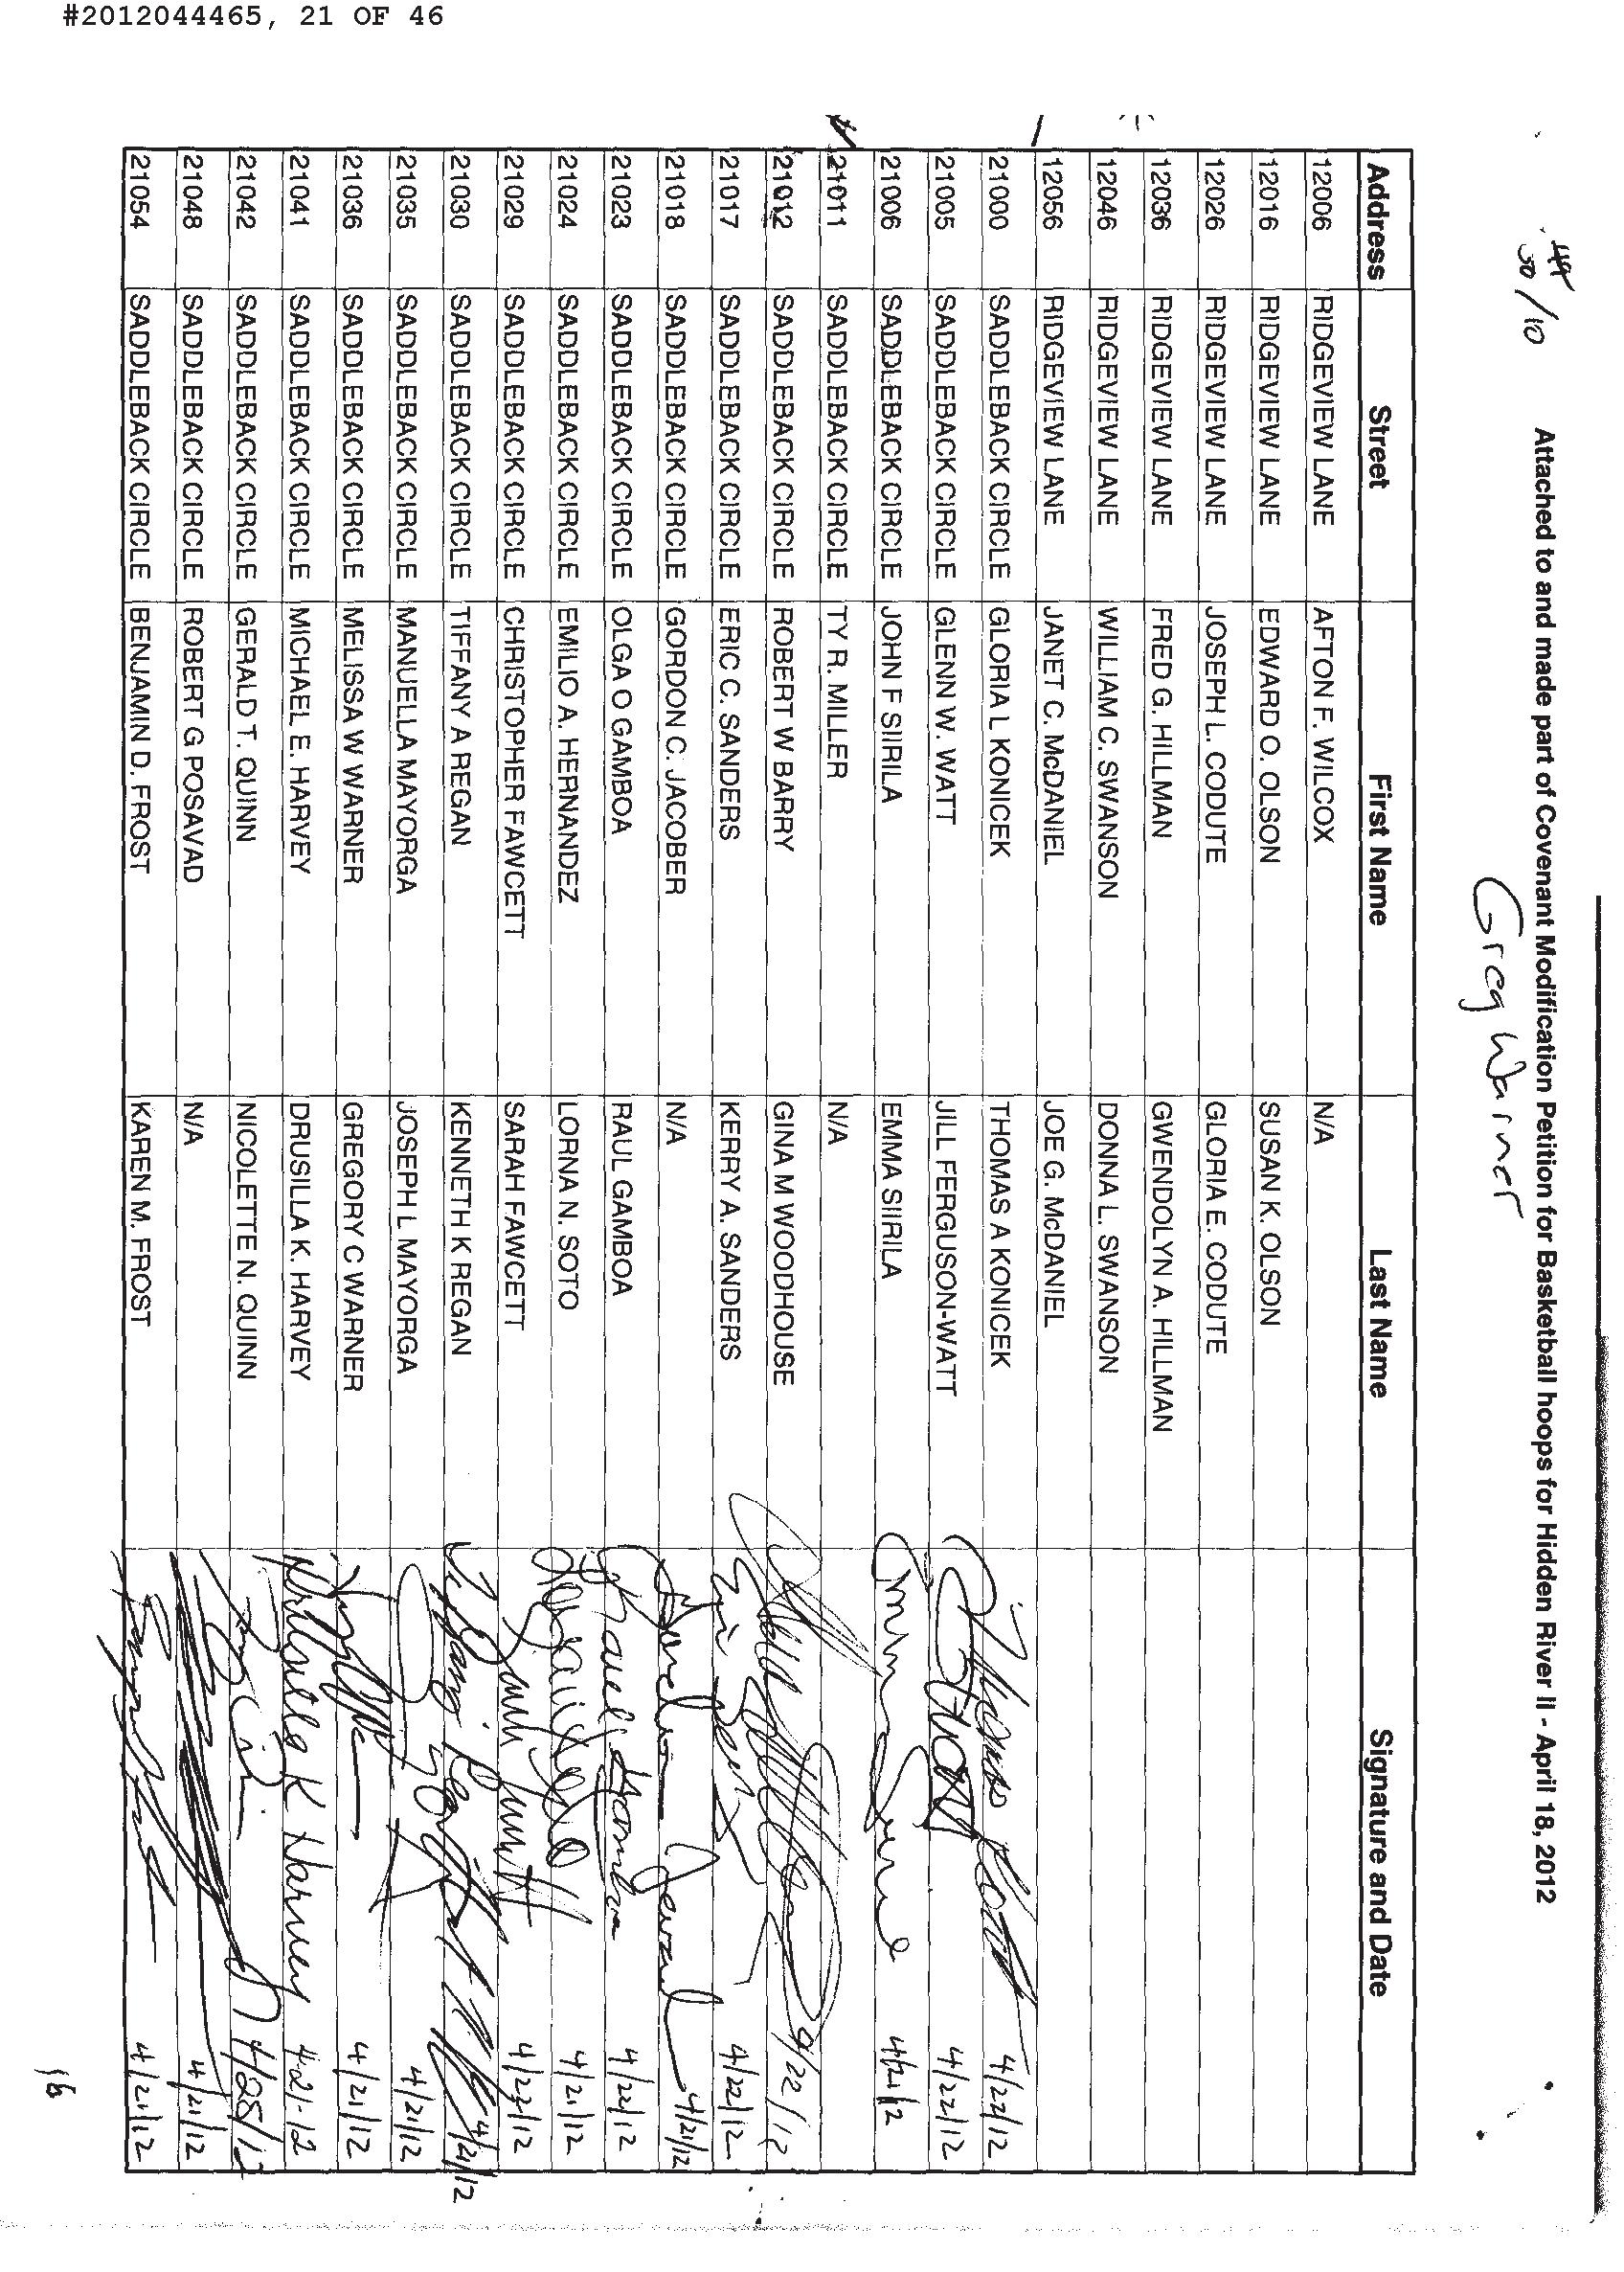 #2012044465, 21 OF 46
Attached to and made part of Covenant Modification Petition for Basketball hoops for Hidden River II - April 18, 2012
30/10
Greg Warner
Address Street First Name Last Name Signature and Date
12006 RIDGEVIEW LANE AFTON F. WILCOX N/A
12016 RIDGEVIEW LANE EDWARD O. OLSON SUSAN K. OLSON
12026 RIDGEVIEW LANE JOSEPH L. CODUTE GLORIA E. CODUTE
12036 RIDGEVIEW LANE FRED G. HILLMAN GWENDOLYN A. HILLMAN
12046 RIDGEVIEW LANE WILLIAM C. SWANSON DONNA L. SWANSON
12056 RIDGEVIEW LANE JANET C. McDANIEL JOE G. McDANIEL
21000 SADDLEBACK CIRCLE GLORIA L KONICEK THOMAS A KONICEK 4/22/12
21005 SADDLEBACK CIRCLE GLENN W. WATT JILL FERGUSON-WATT 4/22/12
21006 SADDLEBACK CIRCLE JOHN F SIIRILA EMMA SIIRILA 4/21/12
21011 SADDLEBACK CIRCLE TY R. MILLER N/A
21012 SADDLEBACK CIRCLE ROBERT W BARRY GINA M WOODHOUSE 4/22/12
21017 SADDLEBACK CIRCLE ERIC C. SANDERS KERRY A. SANDERS 4/22/12
21018 SADDLEBACK CIRCLE GORDON C. JACOBER N/A 4/21/12
21023 SADDLEBACK CIRCLE OLGA O GAMBOA RAUL GAMBOA Raul Gamboa 4/22/12
21024 SADDLEBACK CIRCLE EMILIO A. HERNANDEZ LORNA N. SOTO 4/21/12
21029 SADDLEBACK CIRCLE CHRISTOPHER FAWCETT SARAH FAWCETT 4/22/12
21030 SADDLEBACK CIRCLE TIFFANY A REGAN KENNETH K REGAN 4/21/12
21035 SADDLEBACK CIRCLE MANUELLA MAYORGA JOSEPH L MAYORGA 4/21/12
21036 SADDLEBACK CIRCLE MELISSA W WARNER GREGORY C WARNER 4/21/12
21041 SADDLEBACK CIRCLE MICHAEL E. HARVEY DRUSILLA K. HARVEY Drusilla K Harvey 4-21-12
21042 SADDLEBACK CIRCLE GERALD T. QUINN NICOLETTE N. QUINN 4/28/12
21048 SADDLEBACK CIRCLE ROBERT G POSAVAD N/A 4/21/12
21054 SADDLEBACK CIRCLE BENJAMIN D. FROST KAREN M. FROST 4/21/12
16